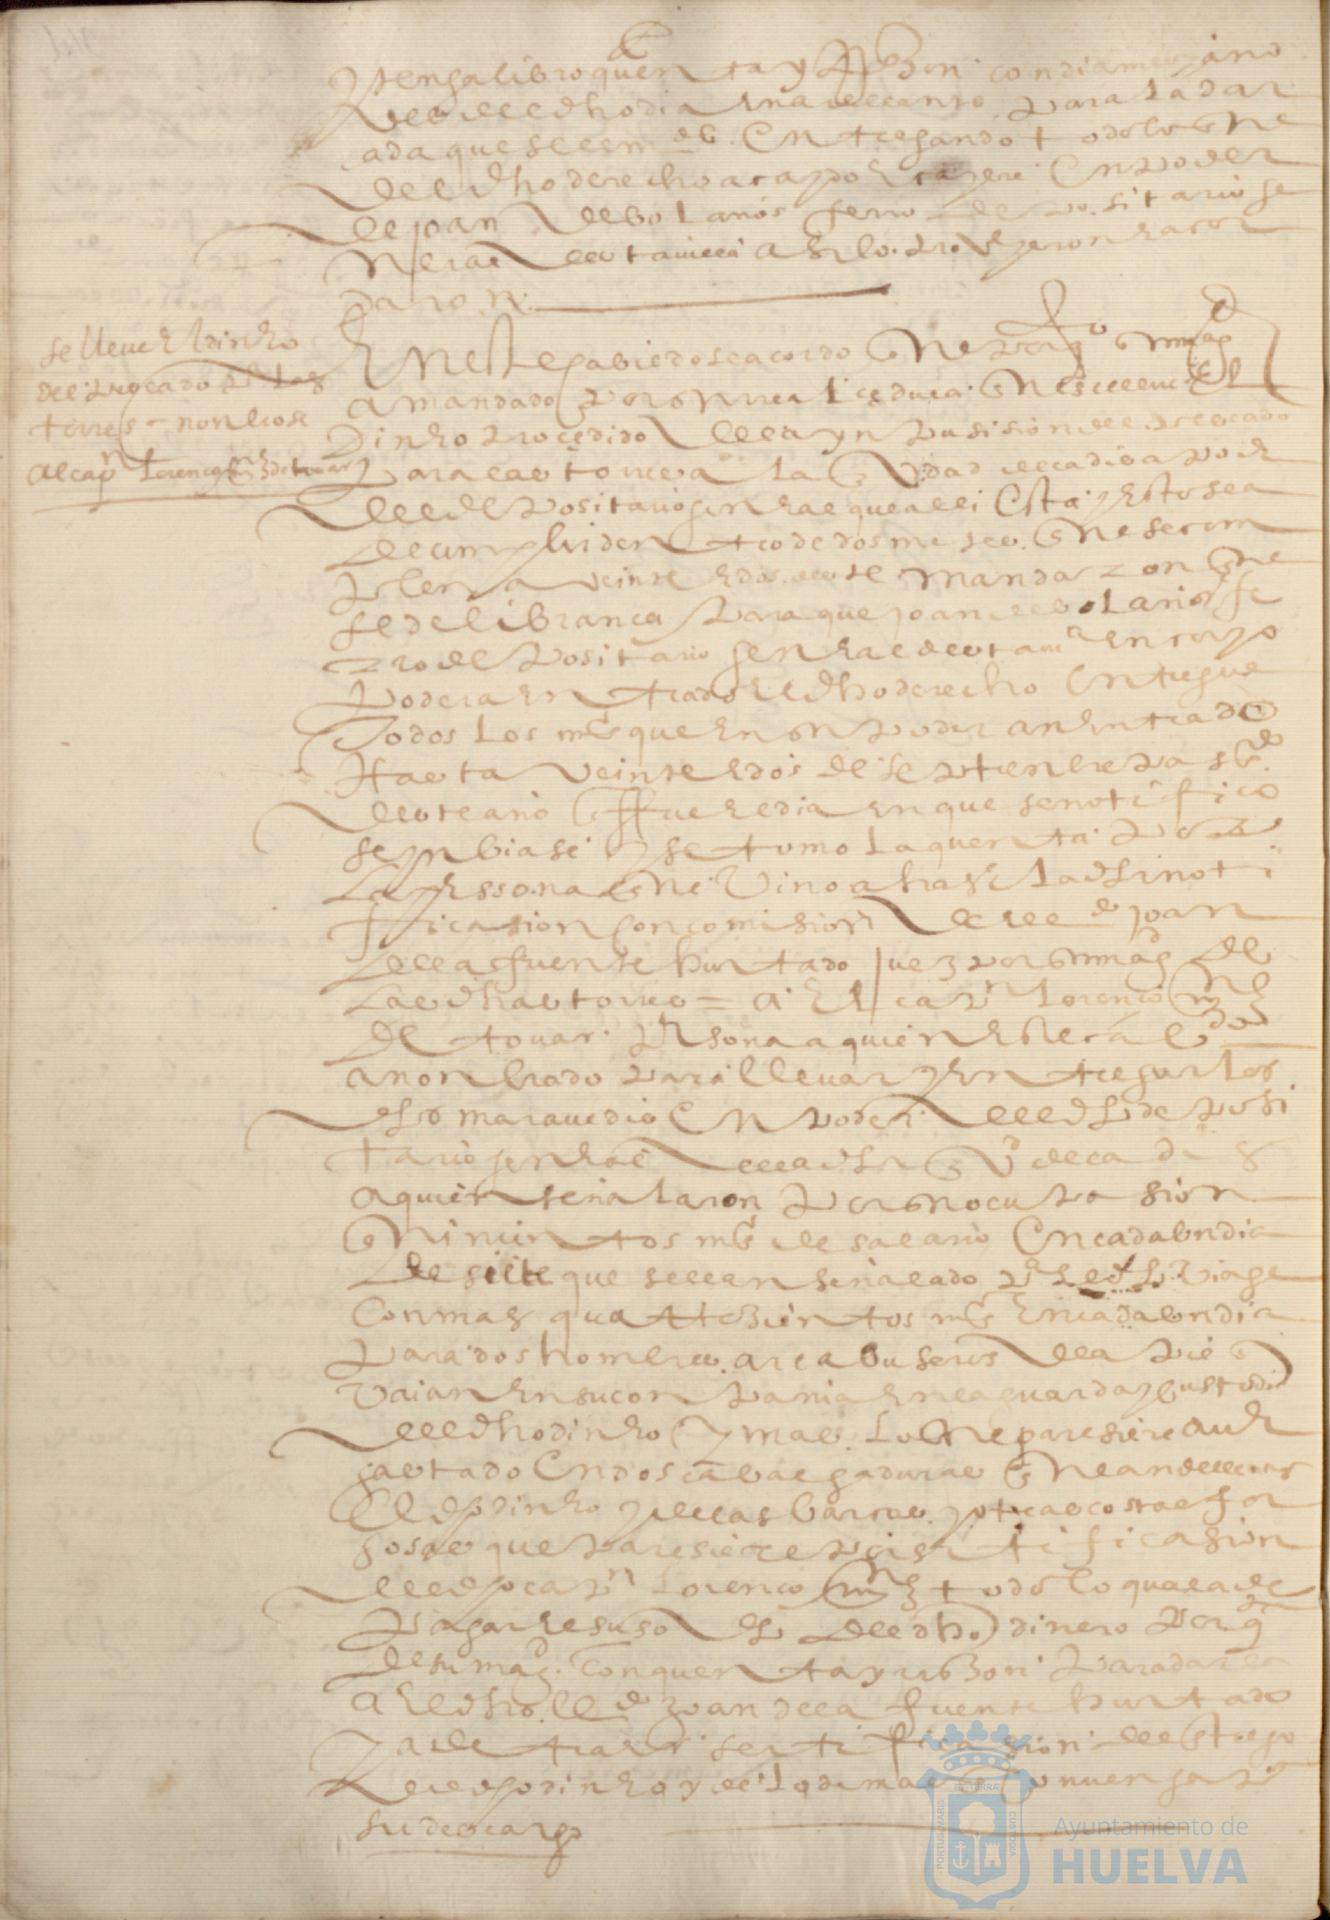 y tenga libro quenta y Rason con dia mes y año
del dho dia en adelante para la dar
cada que se le mde Entregando todo lo que
del dho derecho a caydo y cayere En poder
de joan de bolaños ferro depositario ge
neral desta villa asi lo proveyeron y acor
daron
se lleve el dinero
del procado de las
torres y nonbrose
al capn Lorenço mnz de tovar
En este cabildo se acordo que porqo su magd
a mandado por su real cedula que se lleve El
dinero procedido de la ynpusision del pescado
para las torres a la ciudad de cadiz a poder
del depositario general que alli Esta y Esto sea
de cumplir dentro de dos meses que se cun
plen a veinte y dos mandaron que
se de librança para que joan de bolaños fe
rro depositario general desta villa en cuyo
poder a entrado El dho derecho Entregue
todos los mrs que en su poder an entrado
hasta veinte y dos de setienbre pasdo
deste año que fue el dia en que se notifico
se ynbiase y se tomo la quenta por
la perssona que vino a haser la dha noti
ficasion con comision del ldo joan
de la fuente hurtado juez por su magd de
las dhas torres = a El capn Lorenço mnz
de tovar persona a quien este cabildo
a nonbrado para llevar y entregar los
dhos maravedis En poder del dho deposi
tario general de la dha ciud de cadiz
a quien señalaron por su ocupasion
quinientos mrs de salario En cada un dia
de siete que se le an señalado por el dho viage
con mas quatrosientos mrs En cada un dia
para dos honbres arcabuseros de a pie q
vaian en su conpania en la guarda y custodia
del dho dinero y mas lo que paresiere aver
gastado En dos cavalgaduras que an de llevar
El dho dinero y de las barcas y otras costas for
sosas que paresiere por sertificasion
del dho capn Lorenço mnz todo lo qual a de
pagar el suso dho del dho dinero porq
de su magd con quenta y rrason para dar la
a El dho ldo joan de la fuente hurtado
y a de traer sertificasion del entrego
del dho dinero y de lo demas q convenga pa
su descargo
Ayuntamiento de
HUELVA
PORTUS MARIS
ET TERRÆ
CUSTODIA